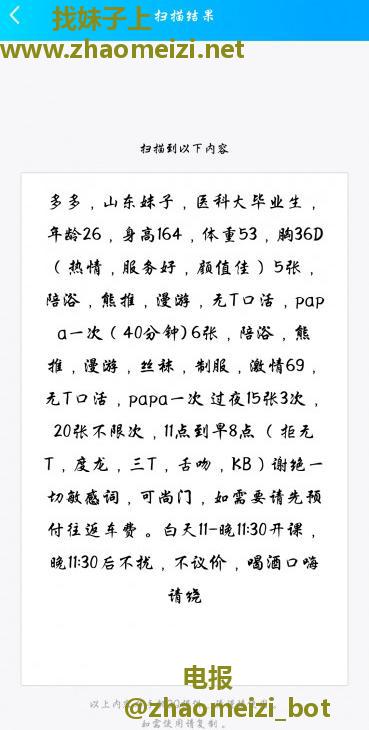 找妹子上
扫描结果
www.zhaomeizi.net
扫描到以下内容
多多，山东妹子，医科大毕业生，
年龄26，身高164，体重53，胸36D
（热情，服务好，颜值佳）5张，
陪浴，熊推，漫游，无T口活，pap
a一次（40分钟)6张，陪浴，熊
推，漫游，丝袜，制服，激情69，
无T口活，papa一次 过夜15张3次，
20张不限次，11点到早8点（ 拒无
T，度龙，三T，舌吻，KB）谢绝一
切敏感词，可尚门，如需要请先预
付往返车费。白天11-晚11:30开课，
晚11:30后不扰，不议价，喝酒口嗨
请绕
电报
以上内容
@zhaomeizi_bot
如需使用请复制。